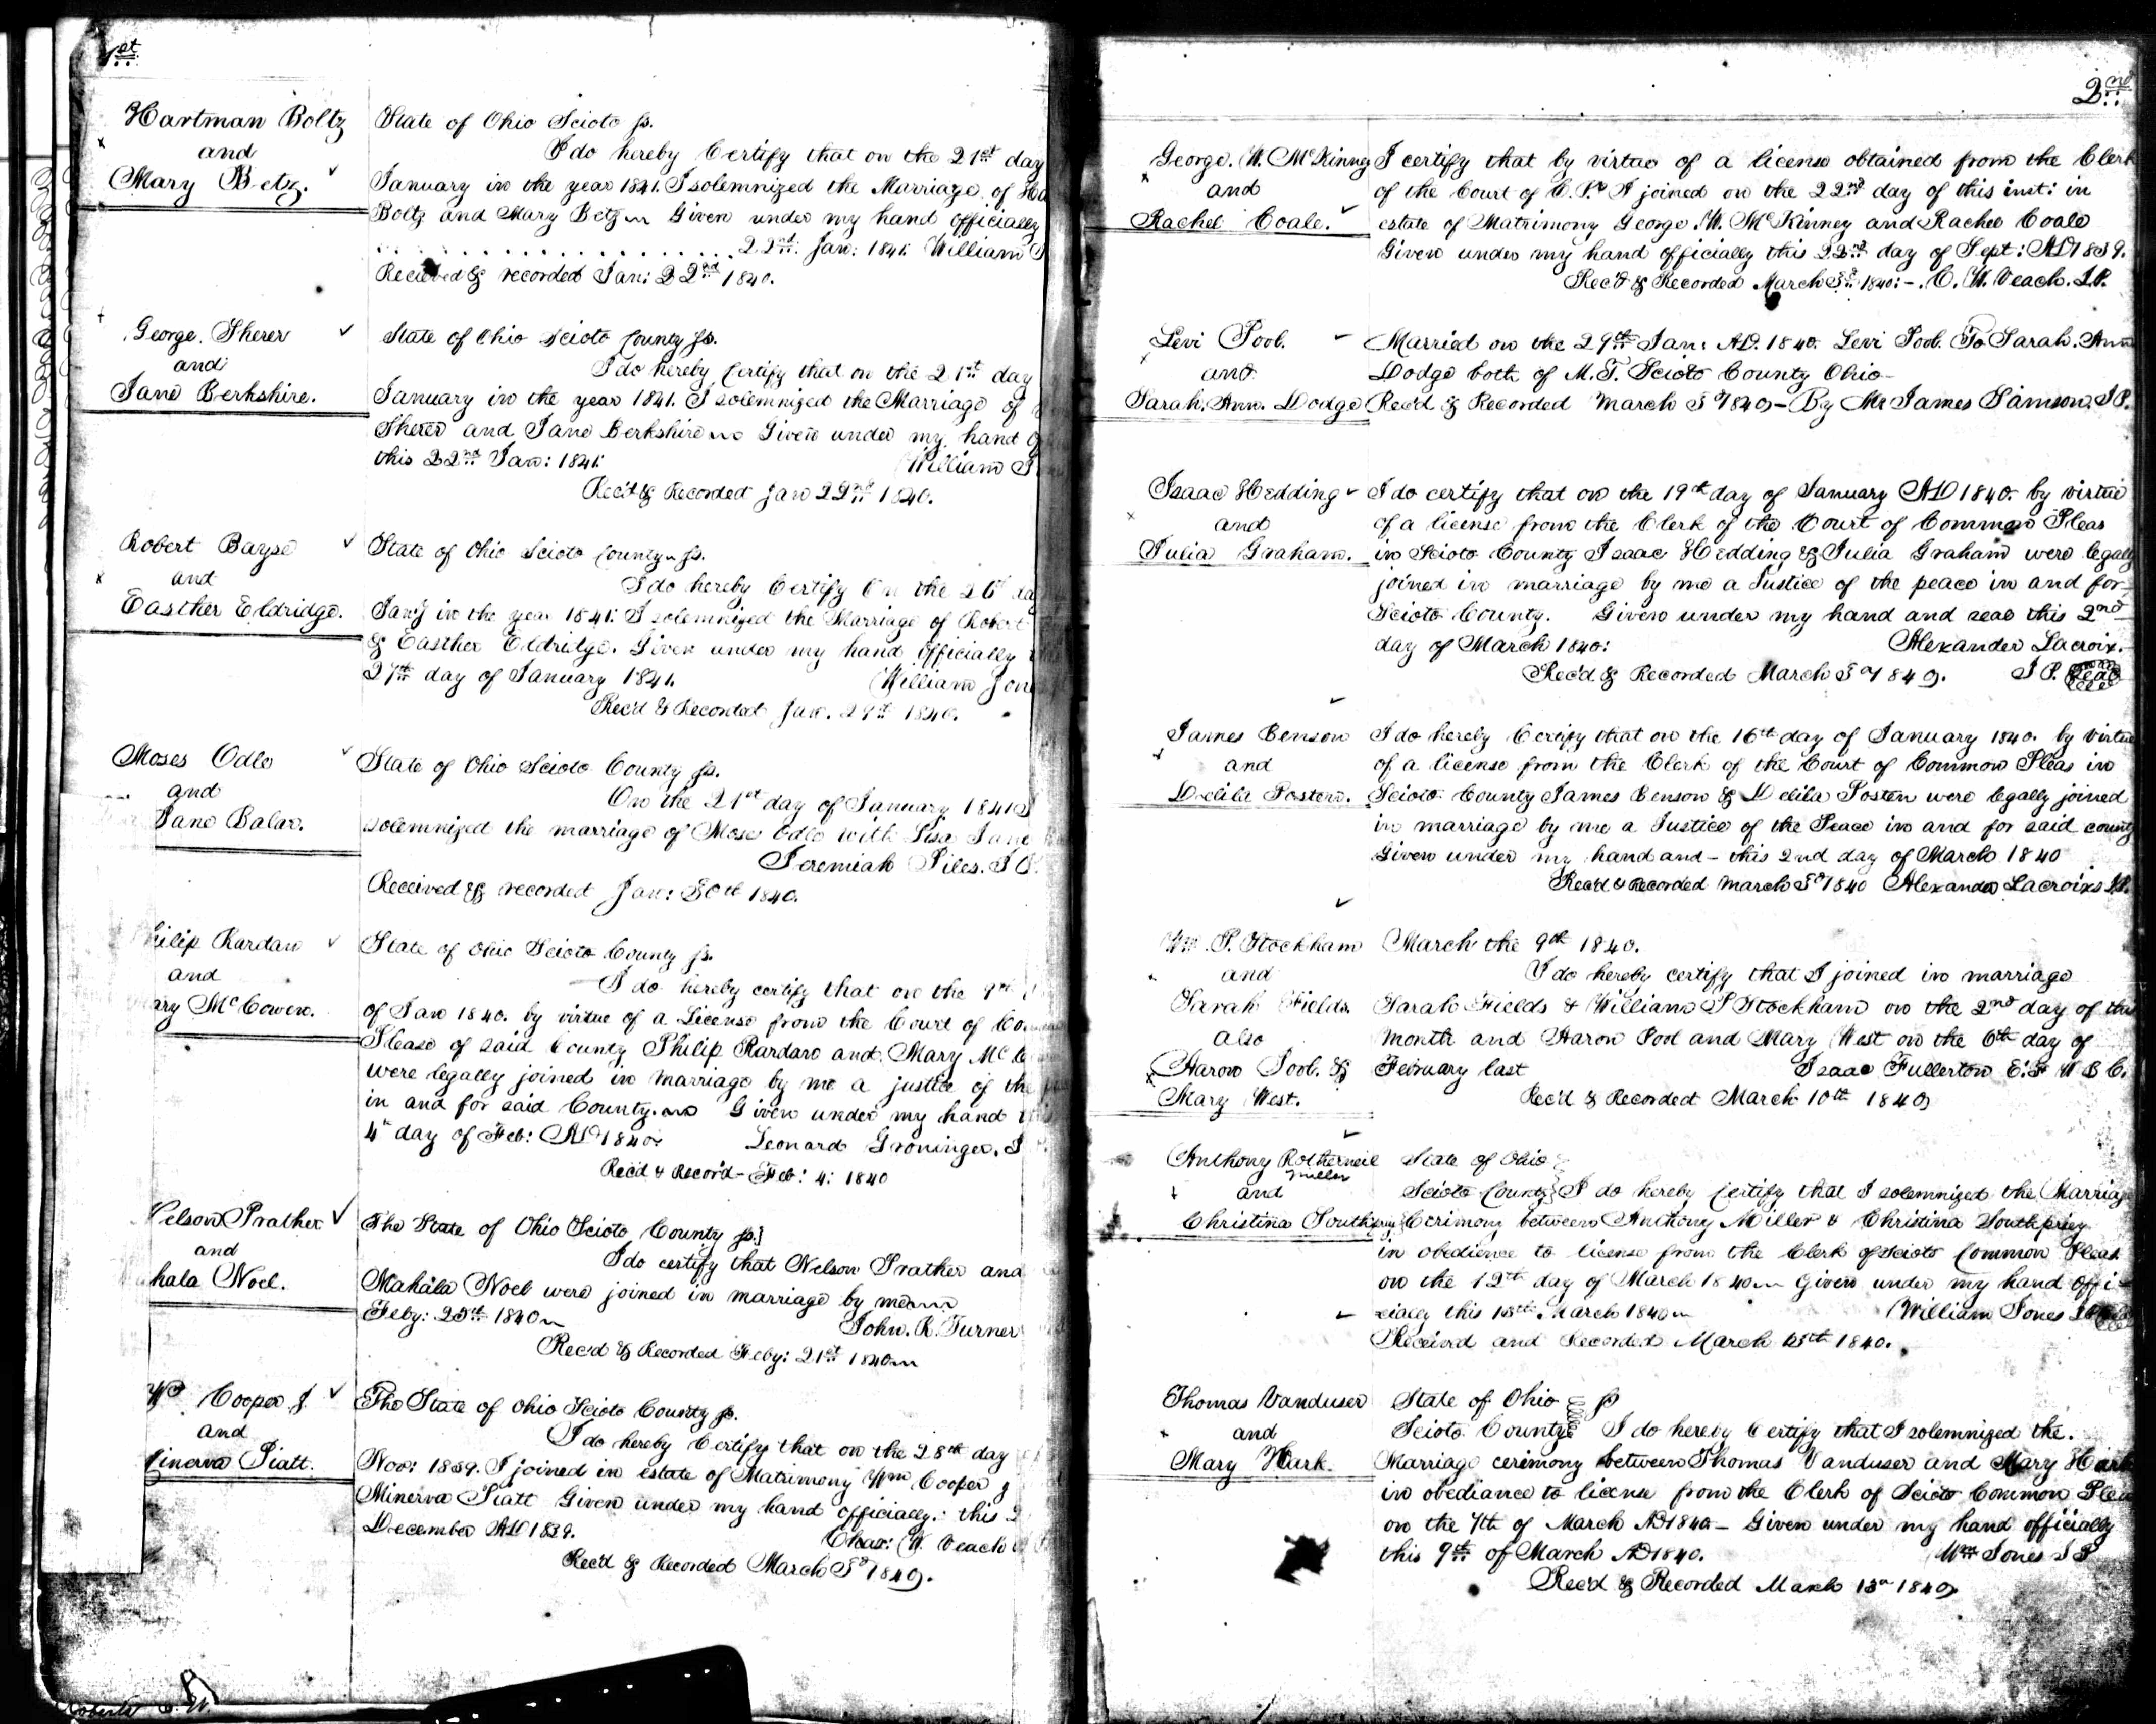 1st
Hartman Boltz
and
Mary Betz.
State of Ohio Scioto ss.
I do hereby Certify that on the 21st day
January in the year 1841. I solemnized the Marriage of Ha
Boltz and Mary Betz Given under my hand officially
22nd Jan: 1841. William
Recieved & recorded Jan: 22nd 1840.
George. Sherer
and
Jane Berkshire.
State of Ohio Scioto County ss.
I do hereby Certify that on the 21st day
January in the year 1841. I solemnized the Marriage of
Sherer and Jane Berkshire Given under my hand
this 22nd Jan: 1841. William
Rec'd & Recorded Jan 22nd 1840.
Robert Bayse
and
Easther Eldridge.
State of Ohio Scioto County ss.
I do hereby Certify On the 26th da
Jan'y in the year 1841. I solemnized the Marriage of Robert
& Easther Eldridge. Given under my hand officially
27th day of January 1841. William Jon
Rec'd & Recorded Jan. 29th 1840.
Moses Odle
and
Jane Balar.
State of Ohio Scioto County ss.
On the 21st day of January 1841 I
solemnized the marriage of Mose Odle with Lisa Jane
Jeremiah Piles. J P.
Received & recorded Jan: 30th 1840.
hilip Rardan
and
ary McCowen.
State of Ohio Scioto County ss.
I do hereby certify that on the 9th
of Jan 1840. by virtue of a License from the Court of Co
Please of said County Philip Rardan and Mary Mc C
were legally joined in marriage by me a justice of the
in and for said County. Given under my hand this
4th day of Feb: AD 1840. Leonard Groninger. J
Rec'd & Record - Feb: 4: 1840
Nelson Prather
and
hala Noel.
The State of Ohio Scioto County ss.
I do certify that Nelson Prather and
Mahala Noel were joined in marriage by me
Feby: 25th 1840 John. R. Turner
Rec'd & Recorded Feby: 21st 1840
Wm Cooper J.
and
Minerva Piatt.
The State of Ohio Scioto County ss.
I do hereby Certify that on the 28th day
Nov: 1839. I joined in estate of Matrimony Wm Cooper J
Minerva Piatt Given under my hand officially: this 2
December AD 1839. Chas: W. Veach
Rec'd & Recorded March 3d 1840.
2nd
George. W. McKinney
and
Rachel Coale.
I certify that by virtue of a license obtained from the Clerk
of the Court of C. P. I joined on the 22nd day of this inst: in
estate of Matrimony George. W. McKinney and Rachel Coale
Given under my hand officially this 22nd day of Sept: AD 1839.
Rec'd & Recorded March 3d 1840: -. C. W. Veach. J.P.
Levi Pool.
and
Sarah. Ann. Dodge
Married on the 29th Jan: AD. 1840. Levi Pool. To Sarah. Ann
Dodge both of M. T. Scioto County Ohio
Rec'd & Recorded March 3d 1840 - By Me James Samson. J P.
Isaac Hedding
and
Julia Graham.
I do certify that on the 19th day of January AD 1840. by virtue
of a license from the Clerk of the Court of Common Pleas
in Scioto County Isaac Hedding & Julia Graham were legally
joined in marriage by me a Justice of the peace in and for
Scioto County. Given under my hand and seal this 2nd
day of March 1840: Alexander Lacroix.
Rec'd & Recorded March 3d 1840. J P. Seal
James Benson
and
Delila Posten.
I do hereby Certify that on the 16th day of January 1840. by virtue
of a license from the Clerk of the Court of Common Pleas in
Scioto County James Benson & Delila Posten were legally joined
in marriage by me a Justice of the Peace in and for said county
Given under my hand and - this 2nd day of March 1840
Rec'd & Recorded March 3d 1840 Alexander Lacroix J.P.
Wm. P. Stockham
and
Sarah Fields.
also
Aaron Pool. &
Mary West.
March the 9th 1840.
I do hereby certify that I joined in marriage
Sarah Fields & William P Stockham on the 2nd day of this
month and Aaron Pool and Mary West on the 6th day of
February last Isaac Fullerton
Rec'd & Recorded March 10th 1840
Anthony Rotherneil
Miller
and
Christina Southpriey
State of Ohio
Scioto County I do hereby Certify that I solemnized the Marriage
Cerimony between Anthony Miller & Christina Southpriey
in obedience to license from the Clerk of Scioto Common Pleas
on the 12th day of March 1840 Given under my hand offi-
cially this 13th March 1840 William Jones
Received and Recorded March 13th 1840.
Thomas Vanduser
and
Mary Hark.
State of Ohio ss
Scioto County I do hereby Certify that I solemnized the.
Marriage cerimony between Thomas Vanduser and Mary Hark
in obediance to license from the Clerk of Scioto Common Pleas
on the 7th of March AD 1840 - Given under my hand officially
this 9th of March AD 1840. Wm Jones J P
Rec'd & Recorded March 13th 1840